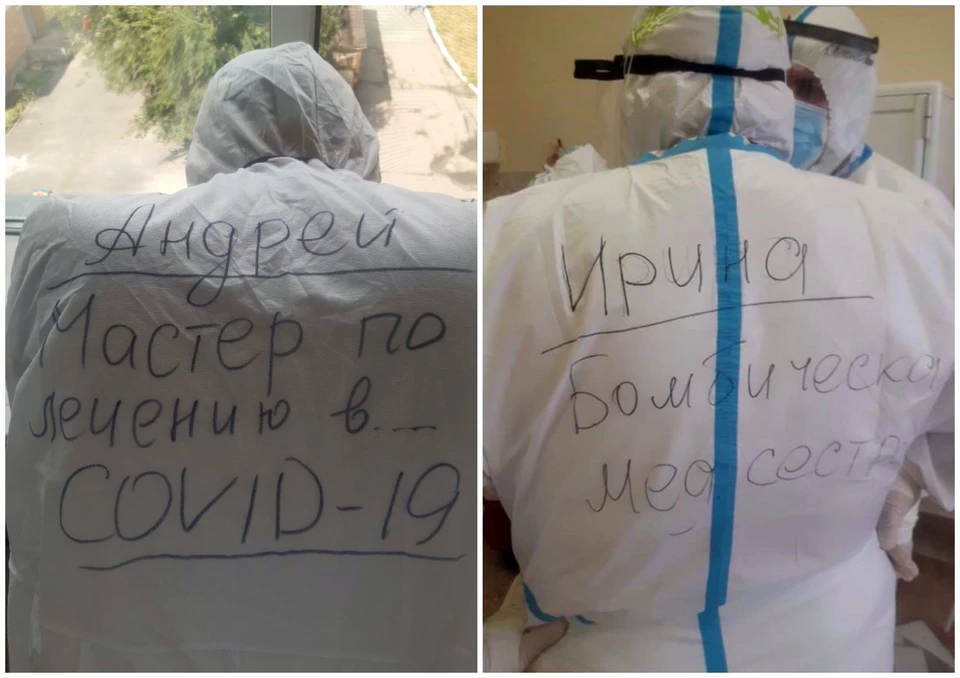 Андрей
Мастер по
лечению в...
COVID-19
Ирина
Бомбическа
мед сестра